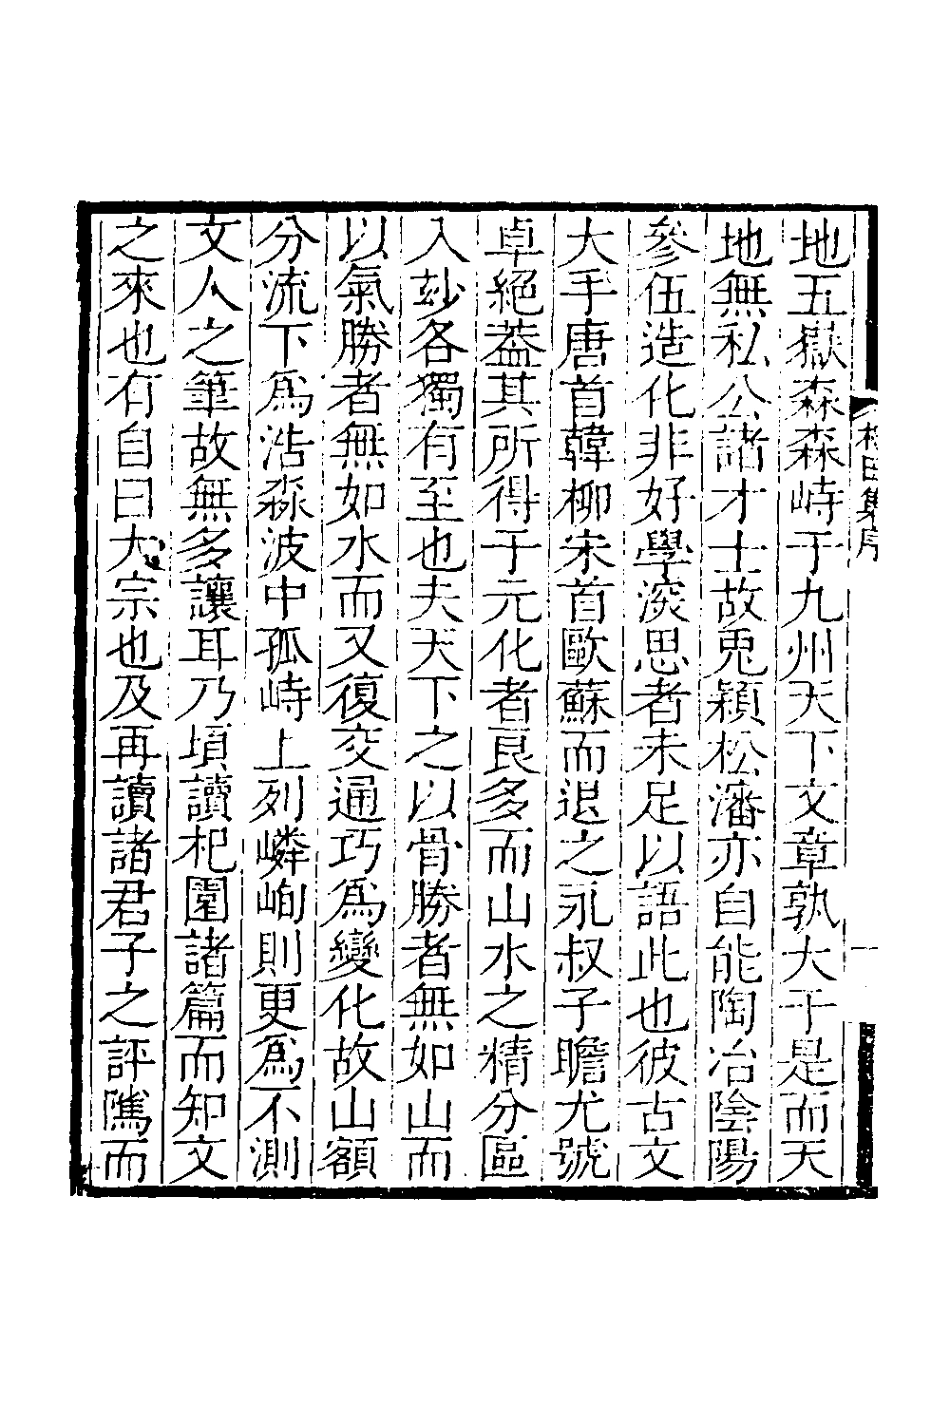 集序
地五嶽森森峙于九州天下文章孰大于是而天
地無私公諸才士故兎穎松瀋亦自能陶冶陰陽
參伍造化非好學深思者未足以語此也彼古文
大手唐首韓柳宋首歐蘇而退之永叔子瞻尤號
卓絕葢其所得于元化者良多而山水之精分區
入玅各獨有至也夫天下之以骨勝者無如山而
以氣勝者無如水而又復交通巧爲變化故山額
分流下爲浩淼波中孤峙上列嶙峋則更爲不測
文人之筆故無多讓耳乃頃讀杞園諸篇而知文
之來也有自曰大宗也及再讀諸君子之評隲而